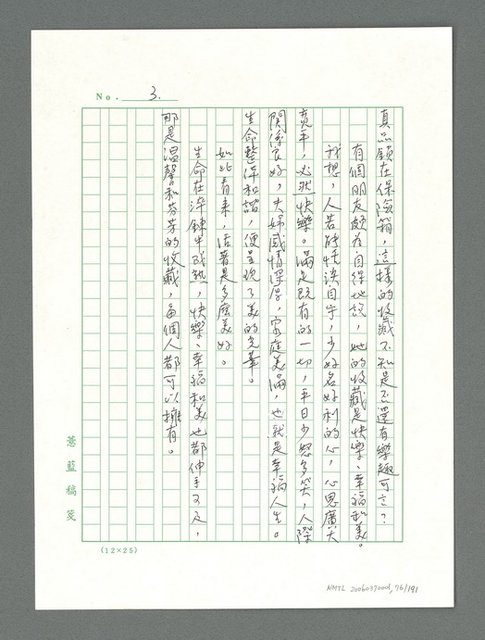 No. 3.
真品鎖在保險箱，這樣的收藏不知是否還有樂趣可言？
有個朋友頗為自得地說，她的收藏是快樂、幸福和美。
我想，人若能恬淡自守，少好名好利的心，心思廣大
寬平，必然快樂。滿足既有的一切，平日少怒多笑，人際
關係良好，夫婦感情深厚，家庭美滿，也就是幸福人生。
生命整體和諧，便呈現了美的光華。
如此看來，活著是多麼美好。
生命在淬鍊中成熟，快樂、幸福和美也都伸手可及，
那是溫馨和芬芳的收藏，每個人都可以擁有。
薏藍稿箋
(12×25)
NMTL 20060370001, 76/191